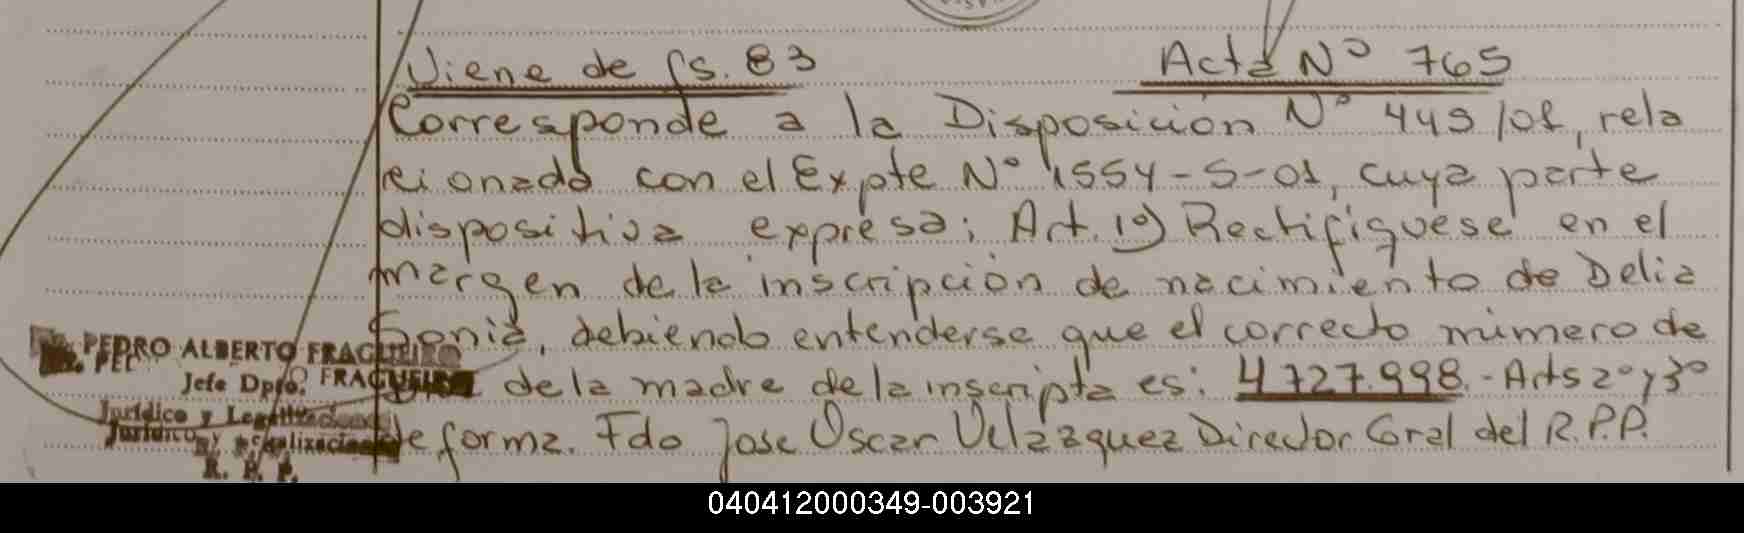 Viene de fs. 83 Acta Nº 765
Corresponde a la Disposición Nº 449/01, rela
cionada con el Expte Nº 1554-S-01, cuya parte
dispositiva expresa: Art. 1º) Rectifíquese en el
margen de la inscripción de nacimiento de Delia
Sonia, debiendo entenderse que el correcto número de
de la madre de la inscripta es: 4.727.998.- Arts 2º y 3º
de forma. Fdo Jose Oscar Velazquez Director Gral del R.P.P.
PEDRO ALBERTO FRAGUEIRO
Jefe Dpto.
Jurídico y Legalizaciones
R. P. P.
040412000349-003921